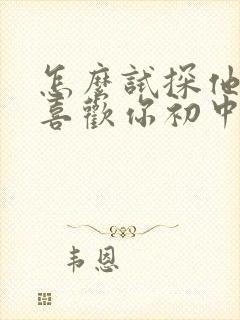 怎麼試探他
喜歡你初中
韦恩